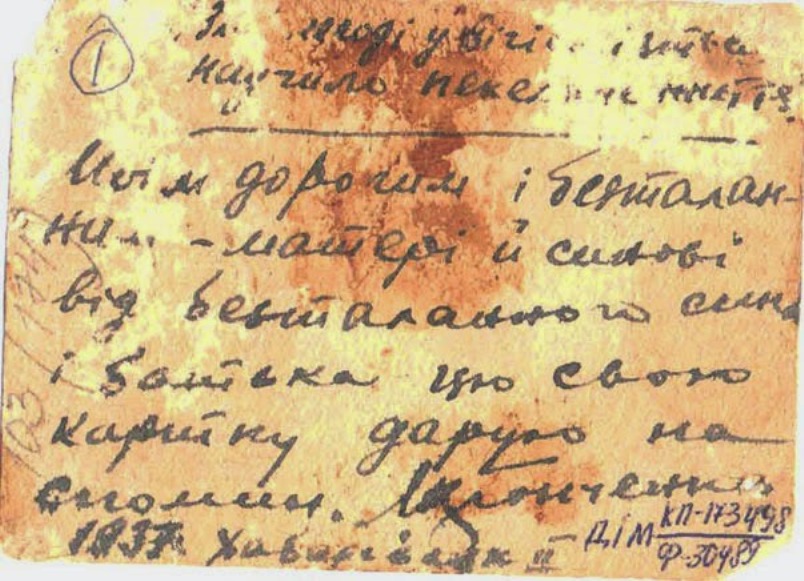 ①
навчило пекельне життя.
Моїм дорогим і безталан-
ним - матері й синові
від безталанного сина
і батька цю свою
картку дарую на
спомин.
1937 Хабаровськ
ДІМ КП-173498
Ф-30489
103/194